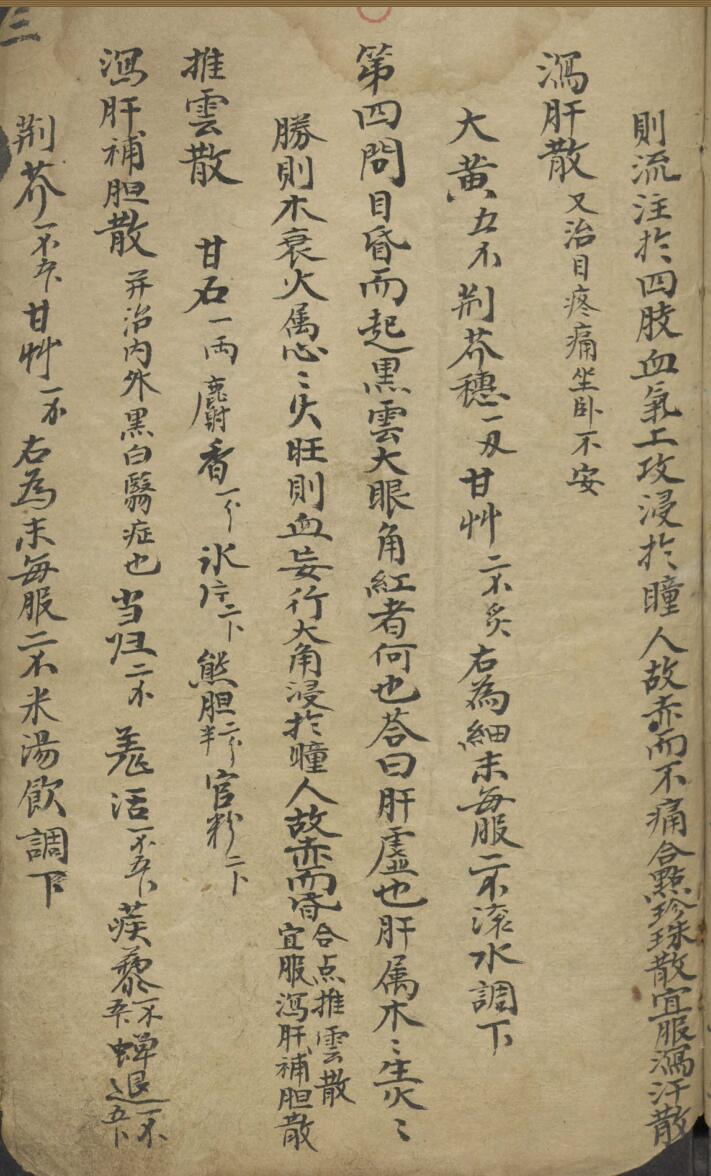 則流注於四肢血氣工攻浸於瞳人故赤而不痛合點珍珠散宜服瀉汗散
瀉肝散 又治目疼痛坐卧不安
大黄五不荆芥穗一刄甘艸二不炙右為細末每服二不滚水調下
第四問目昏而起黑雲大眼角紅者何也荅曰肝虛也肝属木〻生火〻
勝則木衰火属心〻火旺則血妄行大角浸於瞳人故赤而昏合点推雲散
宜服瀉肝補胆散
推雲散 甘石一両麝香一分氷片二卜熊胆二分半官粉二卜
瀉肝補胆散 并治内外黑白翳症也当归二不羌活一不五卜蒺藜一不五卜蝉退一不五卜
荆芥一不五卜甘艸一不右為末每服二不米湯飲調下
三